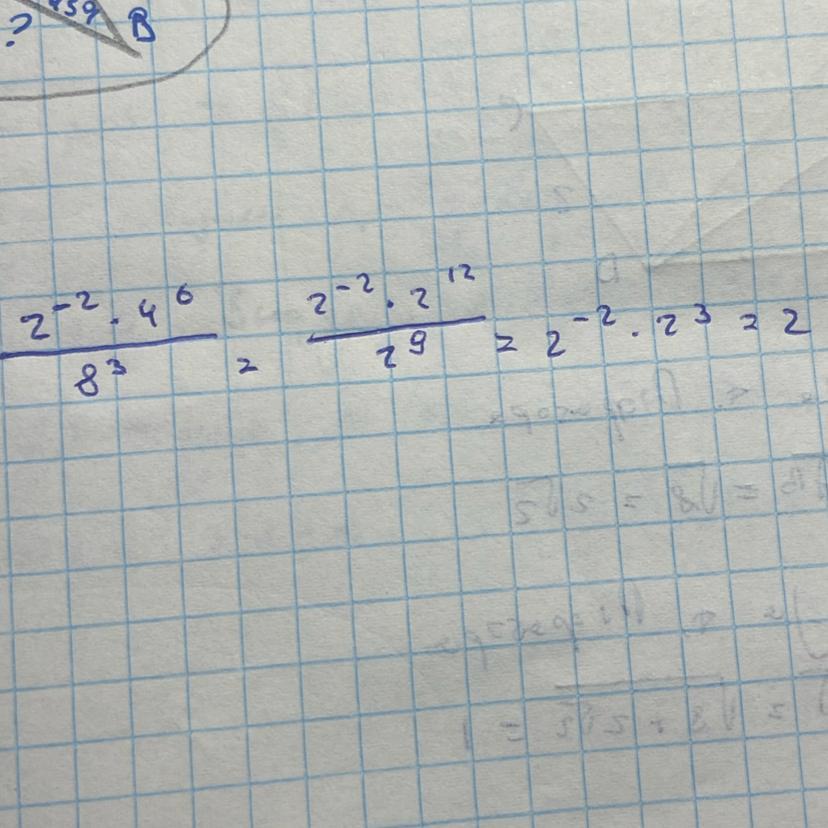 ? 459 B
2⁻² · 4⁶ / 8³ = 2⁻² · 2¹² / 2⁹ = 2⁻² · 2³ = 2